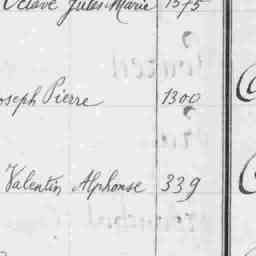 Octave Jules Marie 1375
Joseph Pierre 1300
Valentin Alphonse 339